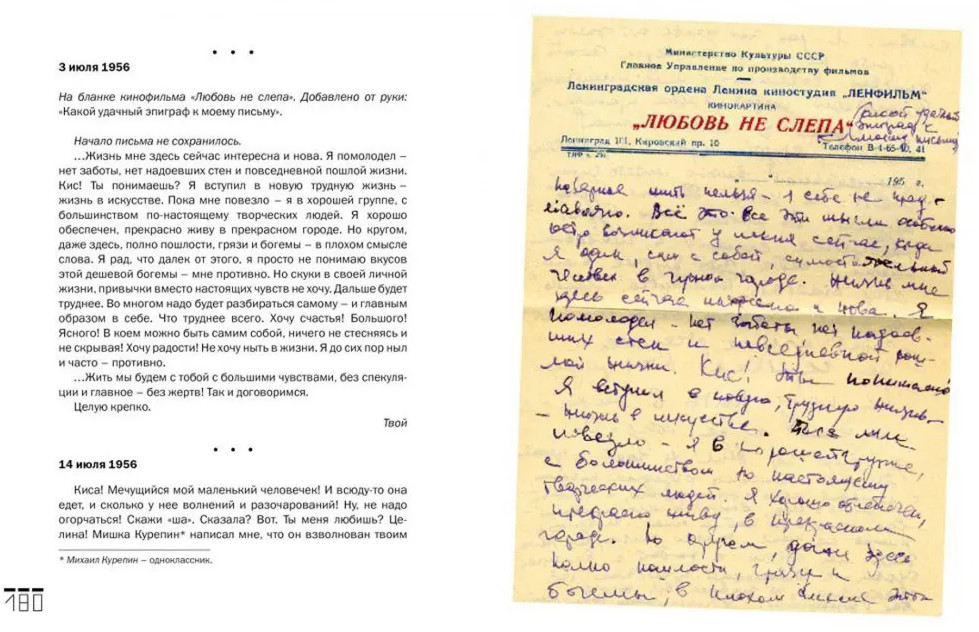 • • •
3 июля 1956
На бланке кинофильма «Любовь не слепа». Добавлено от руки:
«Какой удачный эпиграф к моему письму».
Начало письма не сохранилось.
…Жизнь мне здесь сейчас интересна и нова. Я помолодел –
нет заботы, нет надоевших стен и повседневной пошлой жизни.
Кис! Ты понимаешь? Я вступил в новую трудную жизнь –
жизнь в искусстве. Пока мне повезло – я в хорошей группе, с
большинством по-настоящему творческих людей. Я хорошо
обеспечен, прекрасно живу в прекрасном городе. Но кругом,
даже здесь, полно пошлости, грязи и богемы – в плохом смысле
слова. Я рад, что далек от этого, я просто не понимаю вкусов
этой дешевой богемы – мне противно. Но скуки в своей личной
жизни, привычки вместо настоящих чувств не хочу. Дальше будет
труднее. Во многом надо будет разбираться самому – и главным
образом в себе. Что труднее всего. Хочу счастья! Большого!
Ясного! В коем можно быть самим собой, ничего не стесняясь и
не скрывая! Хочу радости! Не хочу ныть в жизни. Я до сих пор ныл
и часто – противно.
…Жить мы будем с тобой с большими чувствами, без спекуля-
ции и главное – без жертв! Так и договоримся.
Целую крепко.
Твой
• • •
14 июля 1956
Киса! Мечущийся мой маленький человечек! И всюду-то она
едет, и сколько у нее волнений и разочарований! Ну, не надо
огорчаться! Скажи «ша». Сказала? Вот. Ты меня любишь? Це-
лина! Мишка Курепин* написал мне, что он взволнован твоим
* Михаил Курепин – одноклассник.
180
Министерство Культуры СССР
Главное Управление по производству фильмов
Ленинградская ордена Ленина киностудия „ЛЕНФИЛЬМ"
КИНОКАРТИНА
„ЛЮБОВЬ НЕ СЛЕПА"
Какой удачный
эпиграф к
моему письму
Ленинград 101, Кировский пр. 10 Телефон В-4-65-10, 41
195 г.
жить нельзя – я себе не
Всё это все эти мысли особенно
остро возникают у меня сейчас, когда
я один, сам с собой, самостоятельный
человек в городе. Жизнь мне
здесь сейчас интересна и нова. Я
помолодел – нет заботы, нет надоев-
ших стен и повседневной пош-
лой жизни. Кис! Ты понимаешь?
Я вступил в новую, трудную жизнь –
– жизнь в искусстве. Пока мне
повезло – я в хорошей группе,
с большинством по настоящему
творческих людей. Я хорошо обеспечен,
прекрасно живу, в прекрасном
городе. Но кругом, даже здесь
полно пошлости, грязи и
богемы, в плохом смысле этого